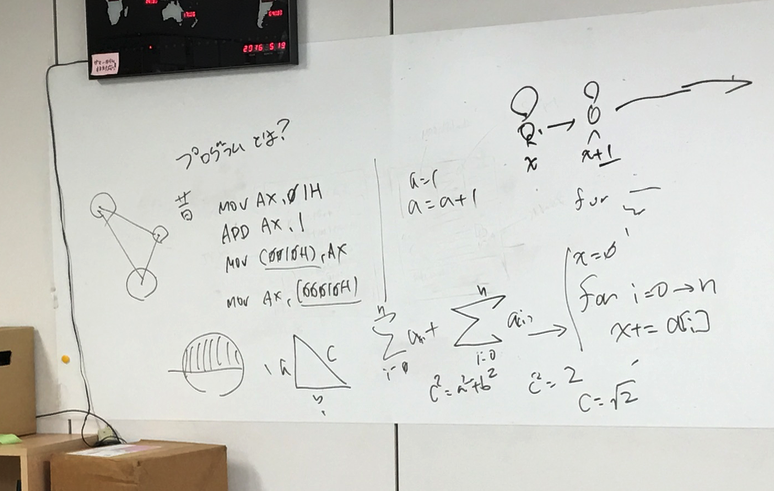 2016 5 19
プログラムとは?
昔
MOV AX, 01H
ADD AX, 1
MOV (0010H), AX
MOV AX, (0010H)
a=1
a=a+1
x
x+1
for
x=0
for i=0→n
x+= a[i]
n
Σ ai +
i=0
n
Σ ai,
i=0
→
a
c
b
c²=a²+b²
c²=2
c=√2